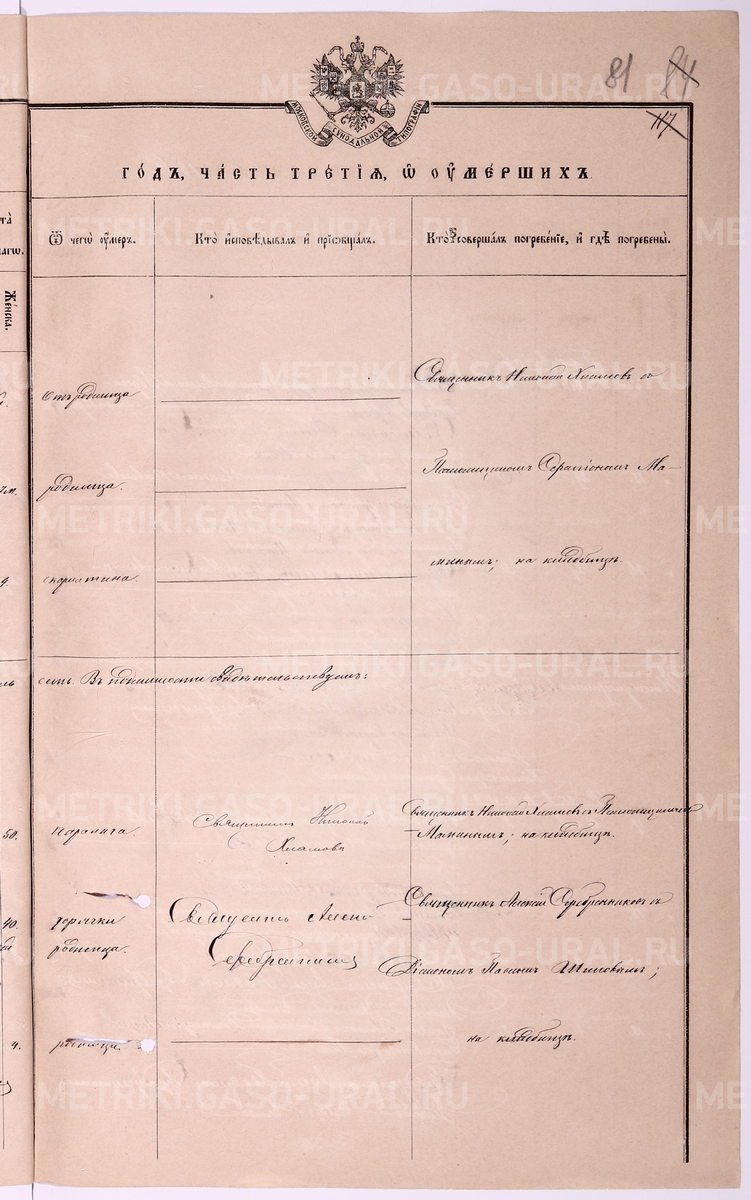 81 84
117
МОСКОВСКОЙ СѴНОДАЛЬНОЙ ТИПОГРАФІИ
ГОДЪ, ЧАСТЬ ТРЕТІЯ, Ѿ ОУМЕРШИХЪ.
Ѿ чегѡ оумеръ.
Кто исповѣдывалъ и пріобщалъ.
Кто совершалъ погребеніе, и гдѣ погребены.
Женска.
Отъ родимца
Священникъ Николай Хламовъ съ
родимца.
Псаломщикомъ Серапіономъ Ма-
скарлатина.
минымъ; на кладбищѣ.
Въ подлинности свидѣтельствуемъ:
50.
паралича
Священникъ Николай
Хламовъ
Священникъ Николай Хламовъ съ Псаломщикомъ
Маминымъ; на кладбищѣ.
40.
горячки
родимца.
Священникъ Алексій
Серебренниковъ
Священникъ Алексій Серебренниковъ съ
Діакономъ Шиловымъ;
4.
родимца.
на кладбищѣ.
METRIKI.GASO-URAL.RU